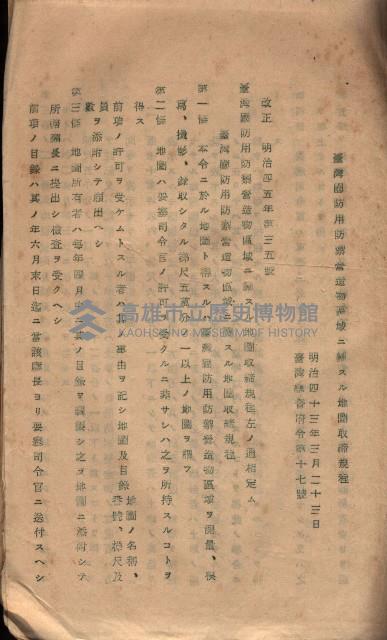 臺灣國防用防禦營造物區域ニ關スル地圖取締規程
明治四十三年三月二十三日
臺灣總督府令第十七號
改正 明治四五年第三五號
臺灣國防用防禦營造物區域ニ關スル地圖取締規程左ノ通相定ム
臺灣國防用防禦營造物區域ニ關スル地圖取締規程
第一條 本令ニ於ル地圖ト稱スルハ臺灣國防用防禦營造物區域ヲ測量、模
寫、撮影、錄取シタル梯尺五萬分ノ一以上ノ地圖ヲ謂フ
第二條 地圖ハ要塞司令官ノ許可ヲ受クルニ非サレハ之ヲ所持スルコトヲ
得ス
前項ノ許可ヲ受ケムトスル者ハ其ノ事由ヲ記シ地圖及目錄 地圖ノ名稱、
番號、梯尺及
員數 ヲ添附シテ願出ヘシ
第三條 地圖所有者ハ每年四月中其ノ目錄ヲ調製シ之ヲ地圖ニ添附シテ
所轄廳長ニ提出シ檢査ヲ受クヘシ
前項ノ目錄ハ其ノ年六月末日迄ニ當該廳長ヨリ要塞司令官ニ送付スヘシ
高雄市立歷史博物館
KAOHSIUNG MUSEUM OF HISTORY